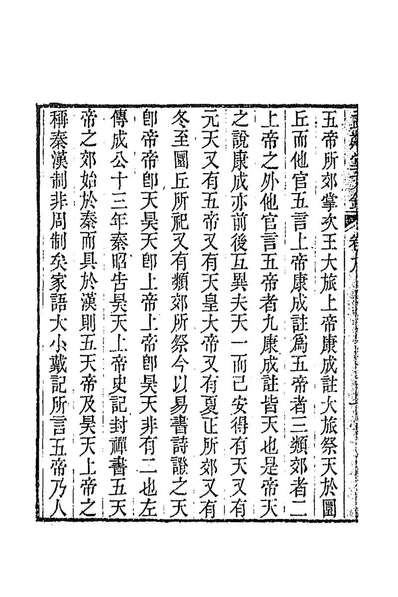 孟鄰堂文鈔 卷九
五帝所郊掌次王大旅上帝康成註大旅祭天於圜
丘而他官五言上帝康成註爲五帝者三類郊者二
上帝之外他官言五帝者九康成註皆天也是帝天
之說康成亦前後互異夫天一而已安得有天又有
元天又有五帝又有天皇大帝又有夏正所郊又有
冬至圜丘所祀又有類郊所祭今以易書詩證之天
卽帝帝卽天昊天卽上帝上帝卽昊天非有二也左
傳成公十三年秦昭告昊天上帝史記封禪書五天
帝之郊始於秦而具於漢則五天帝及昊天上帝之
稱秦漢制非周制矣家語大小戴記所言五帝乃人